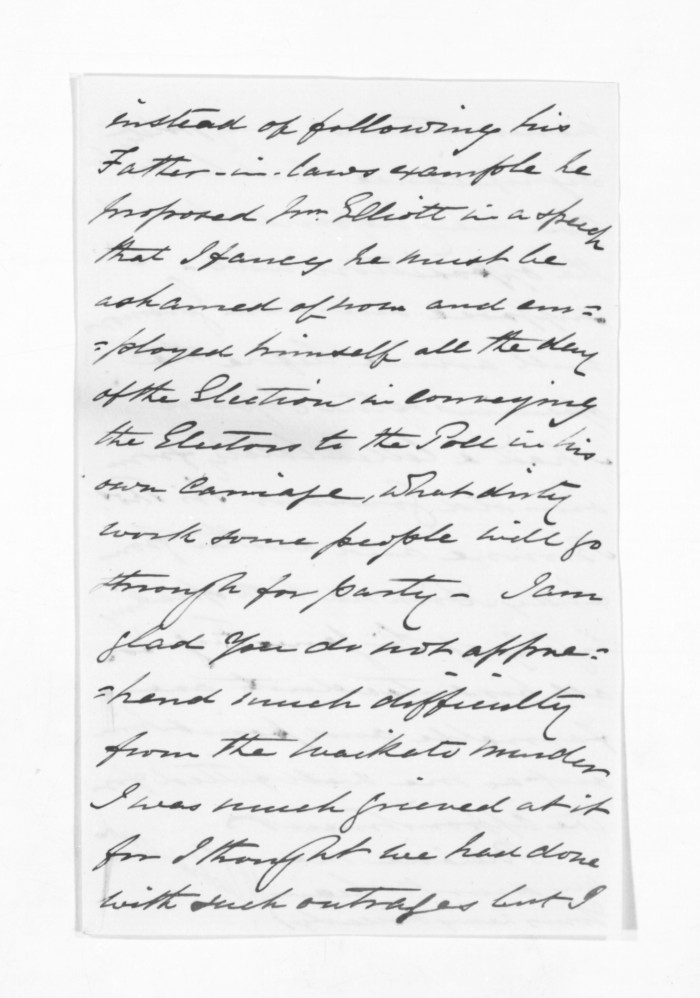 instead of following his
Father-in-laws example he
proposed Mr. Elliott in a speech
that I fancy he must be
ashamed of now and em=
=ployed himself all the day
of the Election in conveying
the Electors to the Poll in his
own Carriage, what dirty
work some people will go
through for party - I am
glad you do not appre=
=hend much difficulty
from the Waikato Murder
I was much grieved at it
for I thought we had done
with such outrages but I